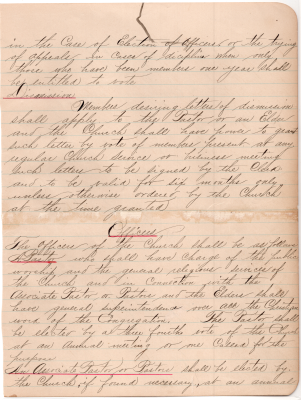 in the Case of Election of Officers or the trying
of appeals in Cases of discipline when only
those who have been members one year shall
be entitled to vote
Dismission
Member desiring letters of dismission
shall apply to the Pastor or an Elder
and the Church shall have power to grant
such letter by vote of members present at any
regular Church service or business meeting
such letters to be signed by the Clerk
and to be valid for six months only
unless otherwise ordered by the Church
at the time granted
Officers
The Officers of the Church shall be as follows
A Pastor who shall have Charge of the public
worship and the general religious services of
the Church and in Connection with the
Associate Pastor or Pastors and the Elders shall
have general superintendence over all the
of the Congregation The Pastor shall
be elected by a three fourths vote of the
at an Annual meeting or one Called for the
purpose
An Associate Pastor or Pastors shall be elected by
the Church, if found necessary, at an annual